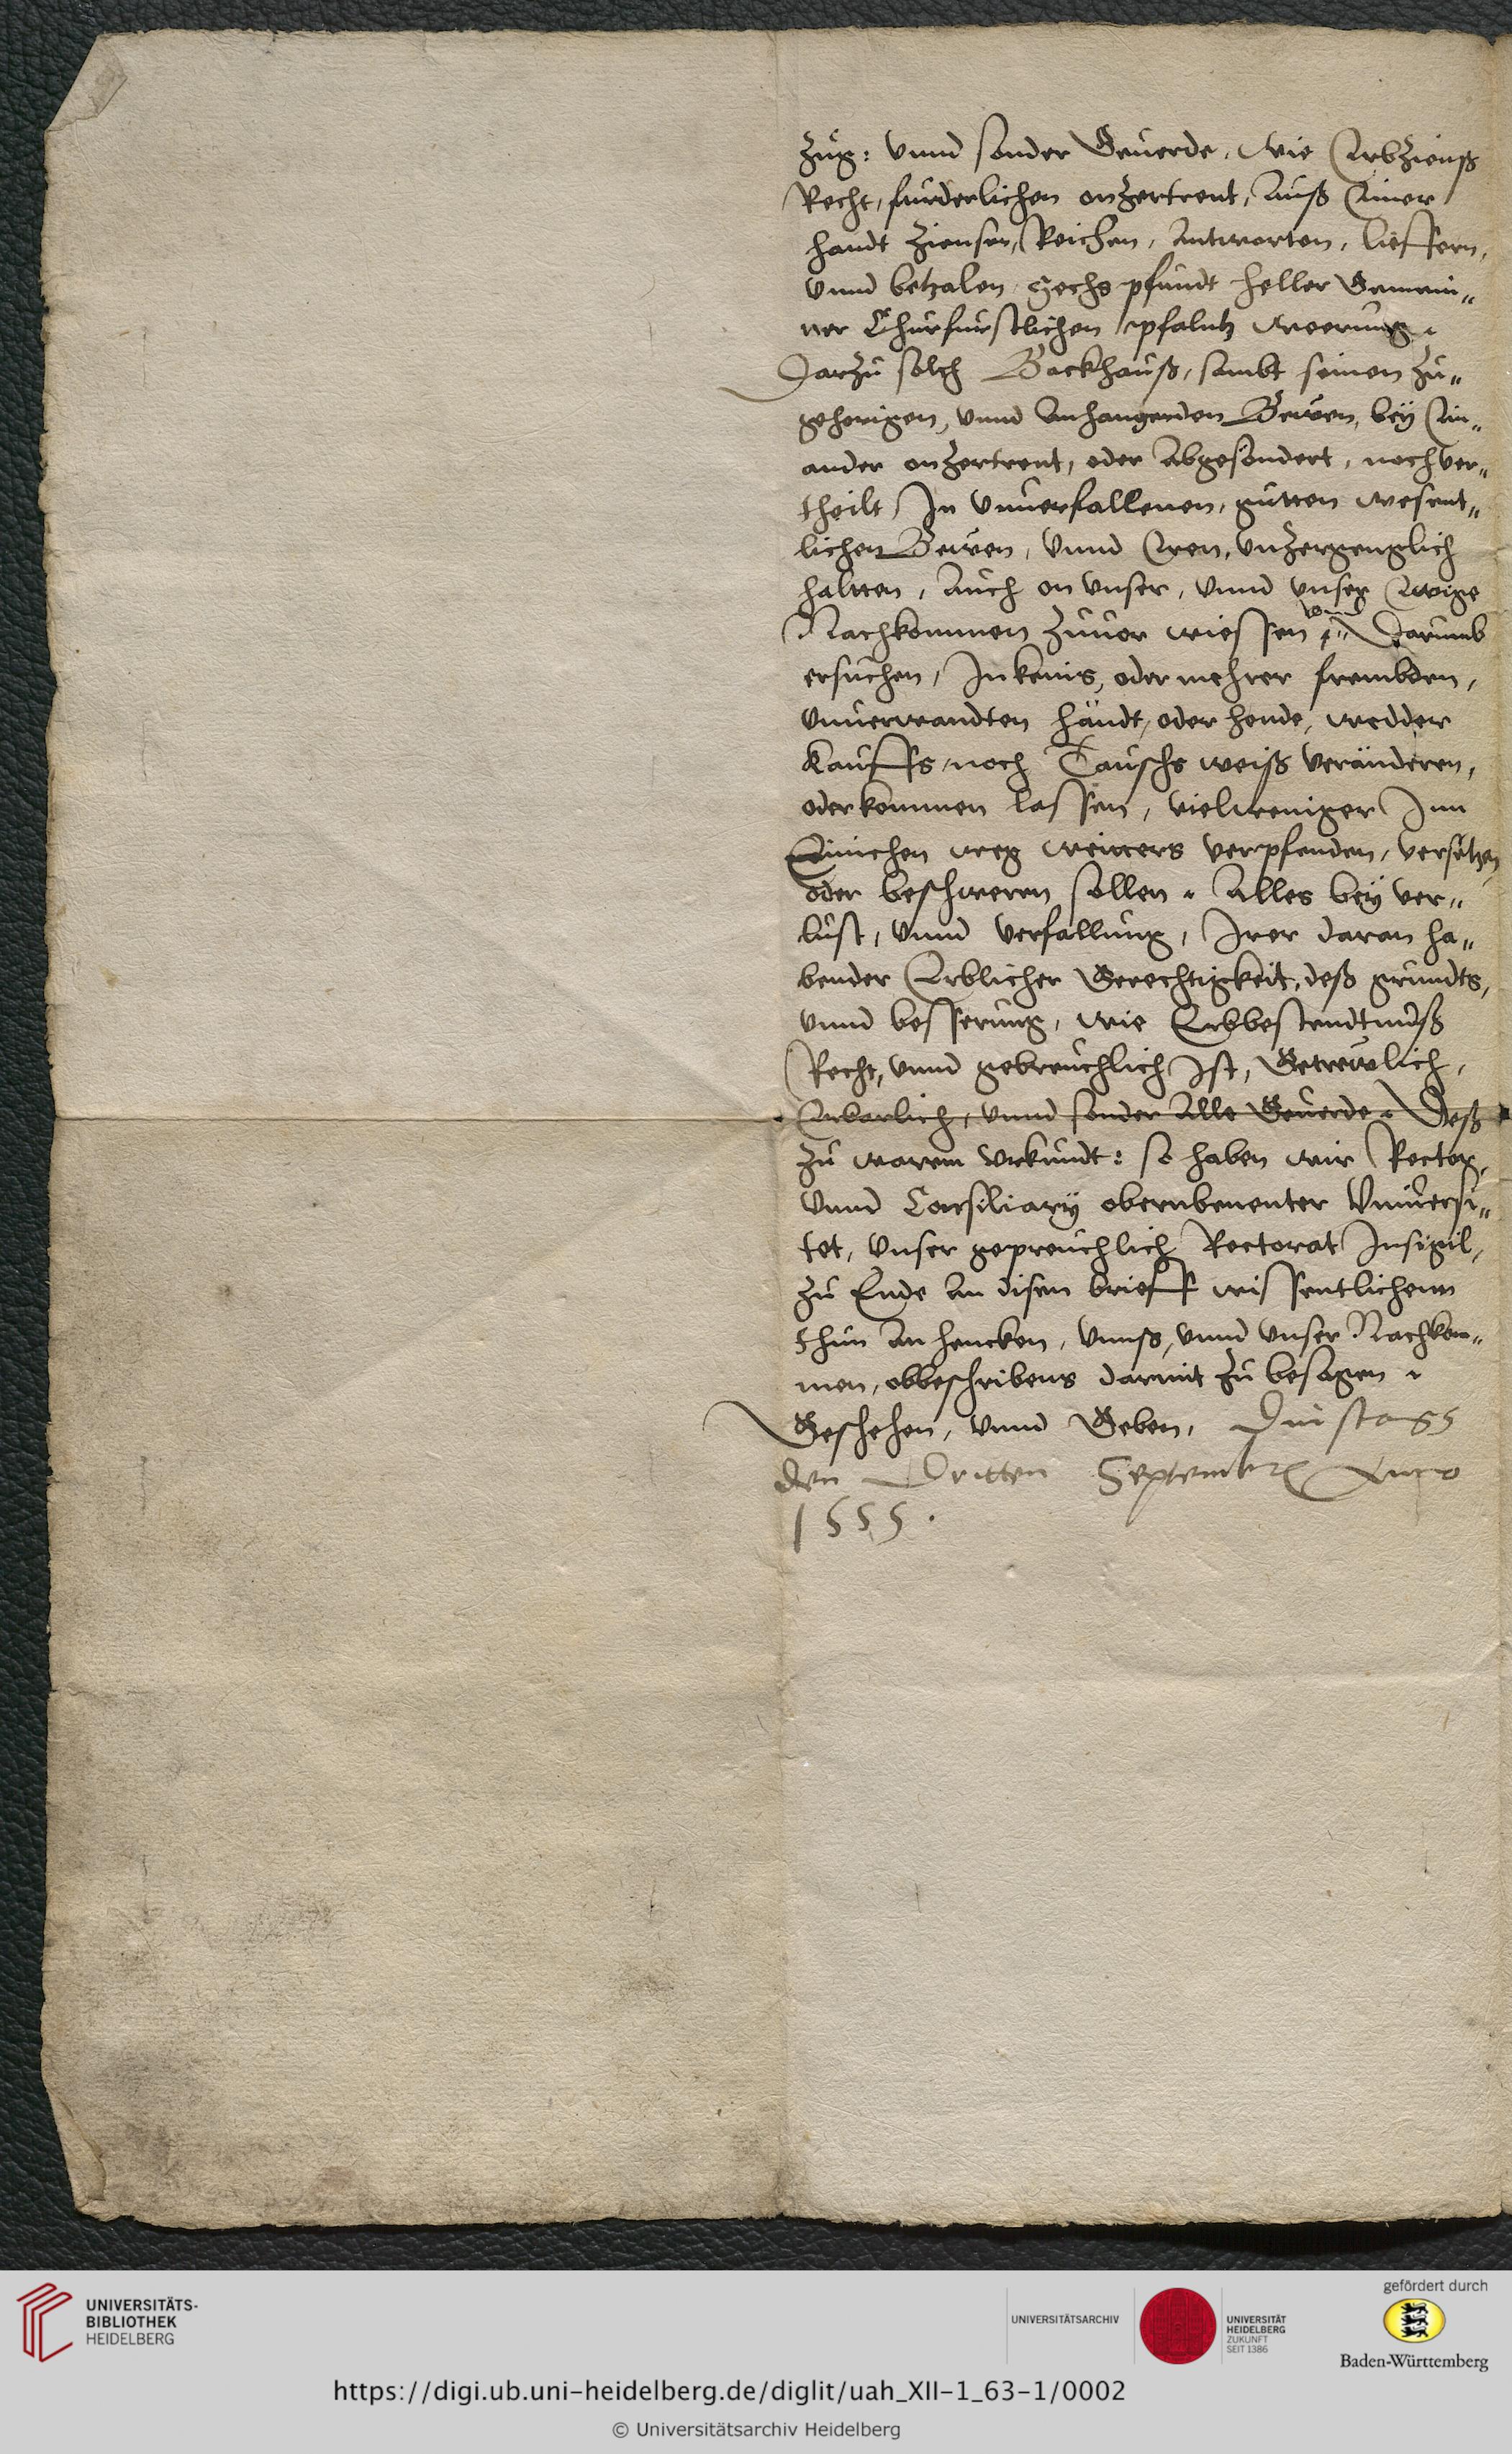 zug: vnnd sonder Geuerde, wie Erbzienß
Recht, furderlichen onzertrent, Auß Einer
handt Ziensen, Reichen, Antworten, lieffern,
vnnd betzalen Sechs pfundt heller Gemein„
ner Churfurstlichen pfaltz Weerung.
Darzu solch Backhauß, sambt seinen zu„
gehorigen, vnnd Anhangenden Bewen, bey Ein„
ander onzertrent, oder Abgesondert, noch ver„
theilt, In vnuerfallenen, gutten wesent„
lichen Bewen, vnnd Eren, vnzergenglich
haltten, Auch on vnser, vnnd vnser Ewige
Nachkommen zuuor wiessen vnnd Darumb
ersuchen, In keins, oder mehrer frembden,
vnuerwandten händt, oder hende, wedder
Kauffs, noch Tauschs weiß veränderen,
oder kommen lassen, vielweniger Inn
Einichen weg weitters verpfenden, versetzen
oder beschweren sollen. Alles bey ver„
lust, vnnd verfallung, Irer daran ha„
bender Erblicher Gerechtigkeit, deß grundts,
vnnd besserung, wie Erbbestendtnuß
Recht, vnnd gebreuchlich Ist, Getrewlich,
Erbarlich, vnnd sonder Alle Geuerde. Deß
zu warem vrkundt: so haben wir Rector,
vnnd Consiliary obernbenenter Vniuersi„
tet, vnser gepreuchlich Rectorat Insigil,
zu Ende An disen brieff wissentlichenn
thun An hencken, vnnß, vnnd vnser Nachkom„
men, obbeschribens darmit zu besagen.
Geschehen, vnnd Geben, Dinstags
den Dritten Septembris Anno
1555.
UNIVERSITÄTS-
BIBLIOTHEK
HEIDELBERG
UNIVERSITÄTSARCHIV
UNIVERSITÄT
HEIDELBERG
ZUKUNFT
SEIT 1386
gefördert durch
Baden-Württemberg
https://digi.ub.uni-heidelberg.de/diglit/uah_XII-1_63-1/0002
© Universitätsarchiv Heidelberg